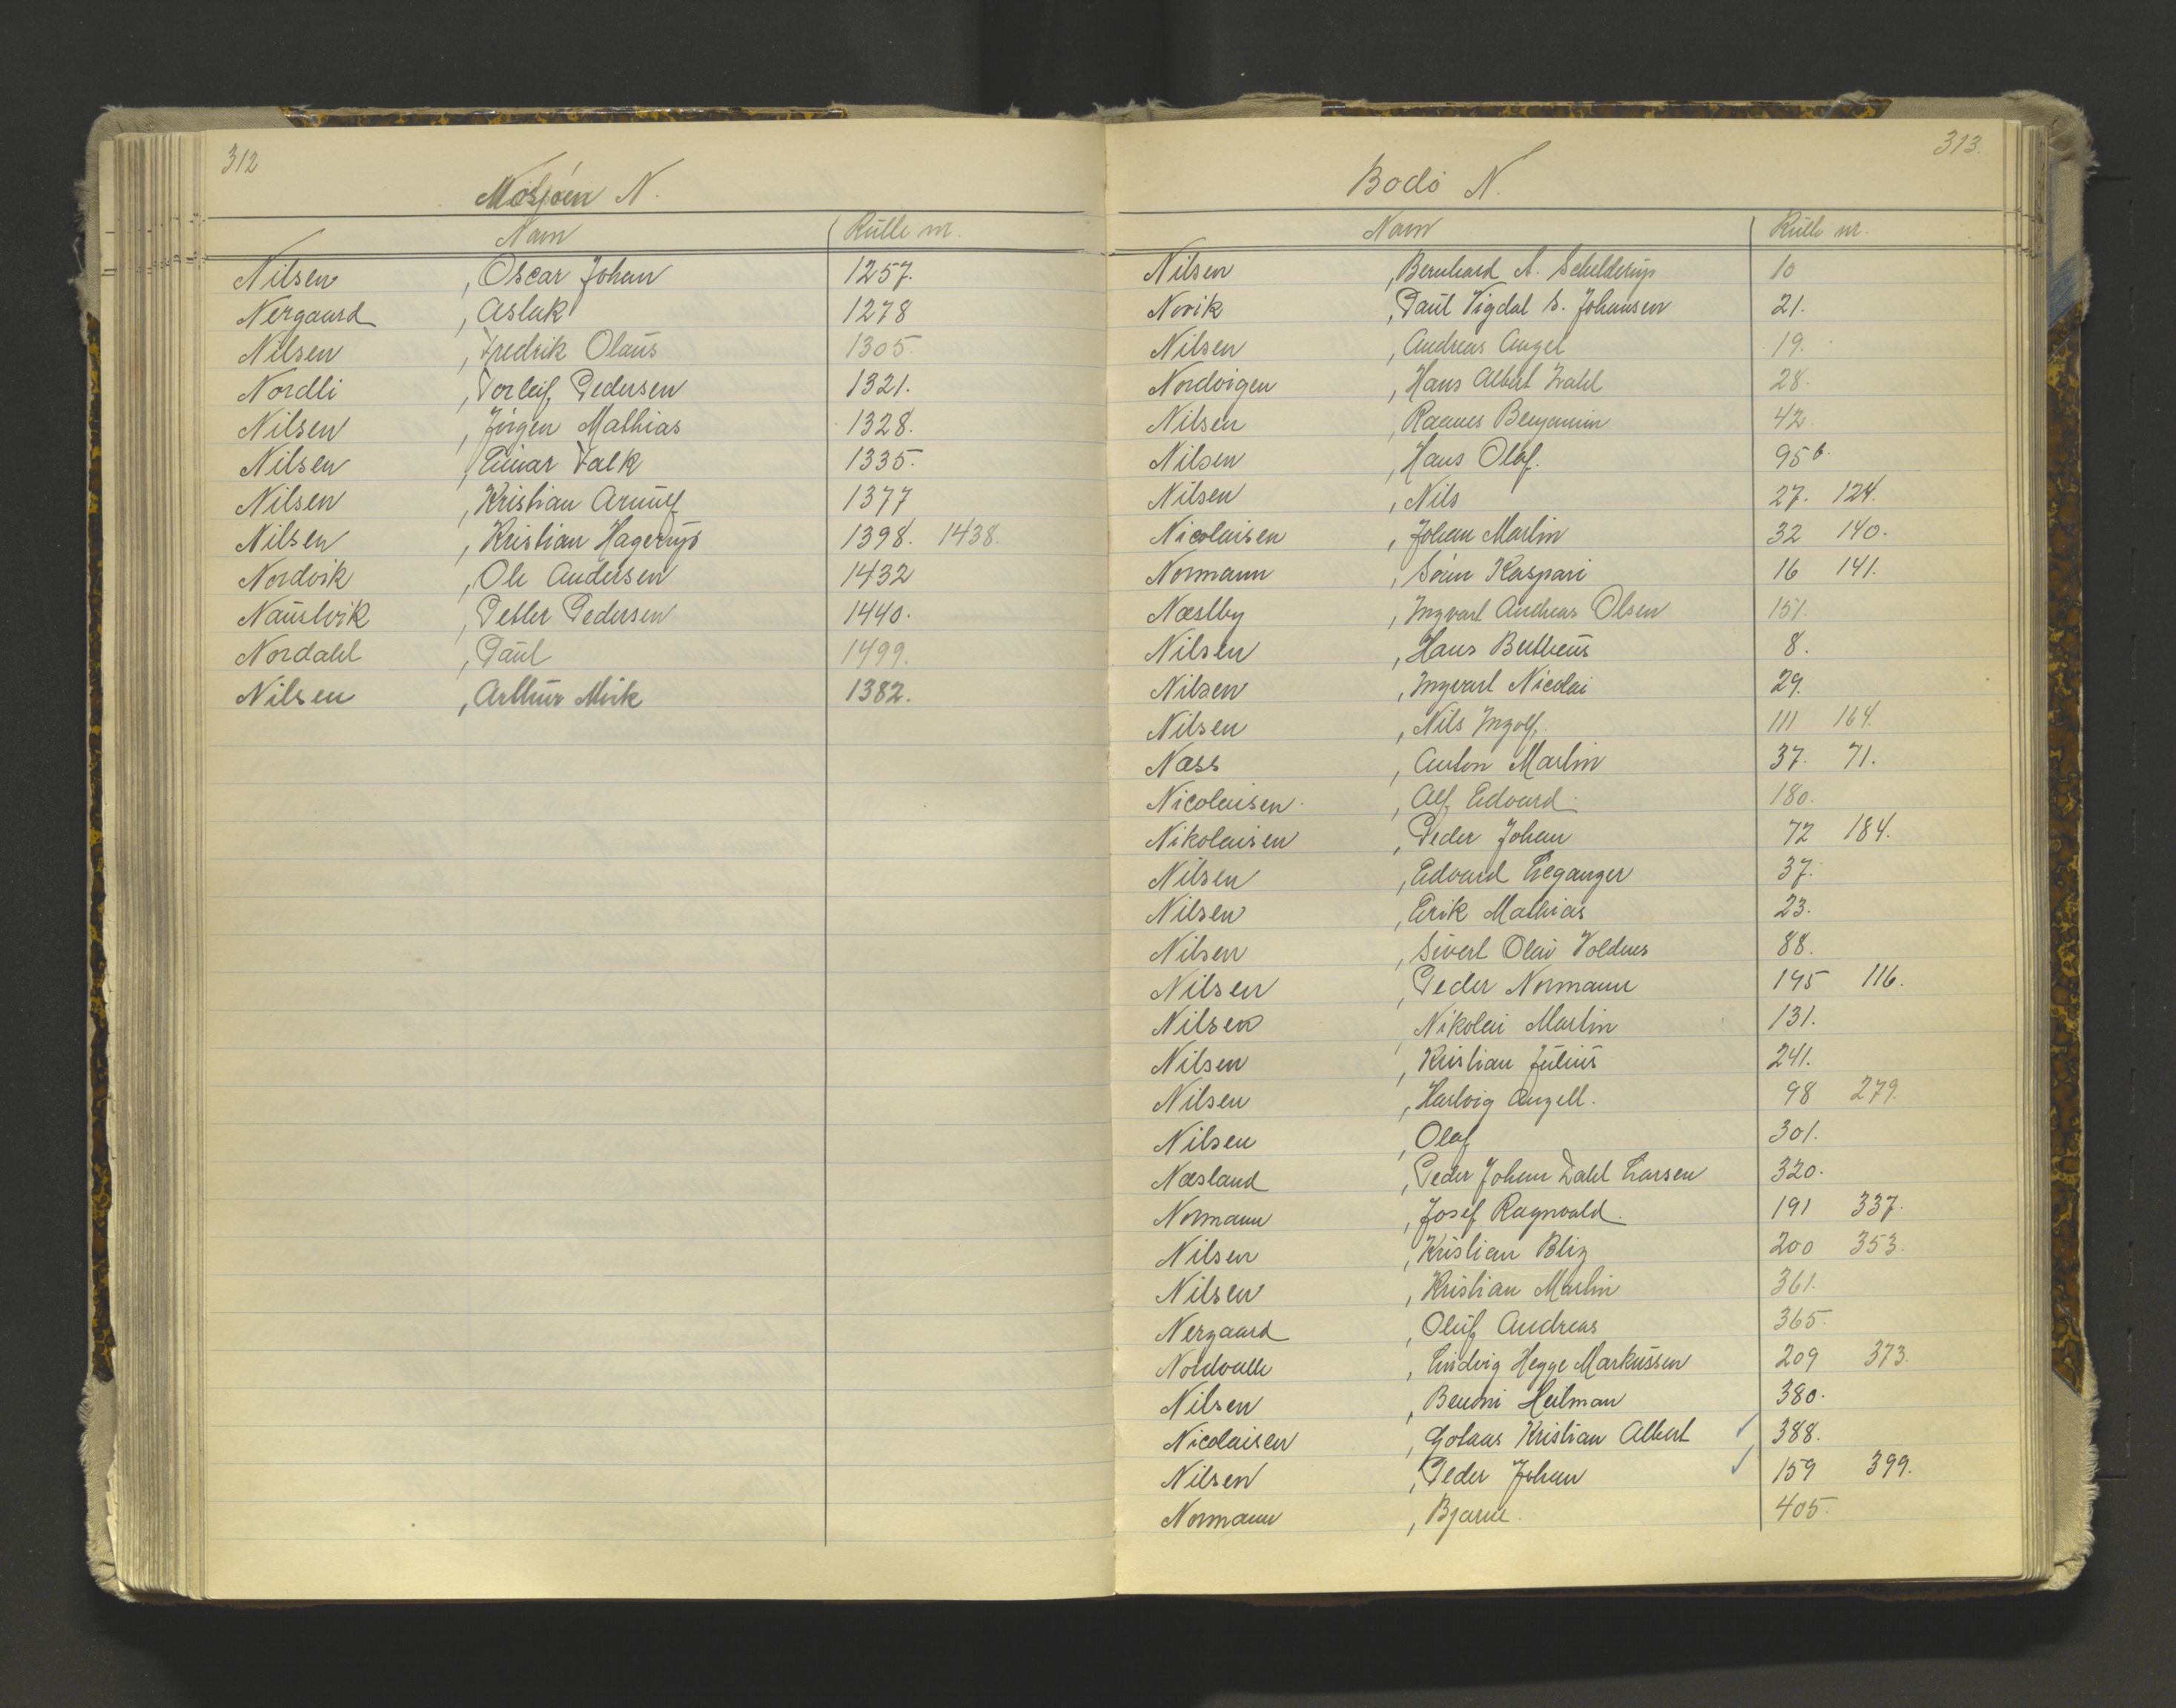 312
Mosjøen N.
Navn Rulle nr.
Nilsen , Oscar Johan 1257.
Nergaard , Aslak 1278
Nilsen , Fredrik Olaus 1305.
Nordli , Torleif Pedersen 1321.
Nilsen , Jörgen Mathias 1328.
Nilsen , Einar Falk 1335.
Nilsen , Kristian Arnulf 1377
Nilsen , Kristian Hagerup 1398. 1438.
Nordvik , Ole Andersen 1432
Naustvik , Petter Pedersen 1440.
Nordahl , Paul 1499.
Nilsen , Arthur Mirk 1382.
313.
Bodö N.
Navn Rulle nr.
Nilsen , Bernhard A. Schelderup 10
Novik , Paul Vigdal S. Johansen 21.
Nilsen , Andreas Angel 19.
Nordvigen , Hans Albert Dahl 28.
Nilsen , Benjamin 42
Nilsen , Hans Olaf. 95 b.
Nilsen , Nils 27. 124.
Nicolaisen , Johan Martin 32 140.
Normann , Sören Kaspari 16 141.
Næstby , Ingvart Andreas Olsen 151.
Nilsen , Hans Butheus 8.
Nilsen , Ingvart Nicolai 29.
Nilsen , Nils Ingolf. 111 164.
Næss , Anton Martin 37. 71.
Nicolaisen , Alf Edvard 180.
Nikolaisen , Peder Johan 72 184.
Nilsen , Edvard Leganger 37.
Nilsen , Erik Mathias 23.
Nilsen , Sivert Olai Voldnes 88.
Nilsen , Peder Normann 145 116.
Nilsen , Nikolai Martin 131.
Nilsen , Kristian Julius 241.
Nilsen , Hartvig Angell. 98 279.
Nilsen , Olaf 301.
Næsland , Peder Johan Dahl Larsen 320.
Normann , Josef Ragnvald. 191 337.
Nilsen , Kristian Blix 200 353.
Nilsen , Kristian Martin 361.
Nergaard , Oluf Andreas 365.
Nordvalle , Ludvig Hegge Markussen 209 373.
Nilsen , Benoni Heilman 380.
Nicolaisen , Golaas Kristian Albert ✓ 388.
Nilsen , Peder Johan ✓ 159 399.
Normann , Bjarne. 405.